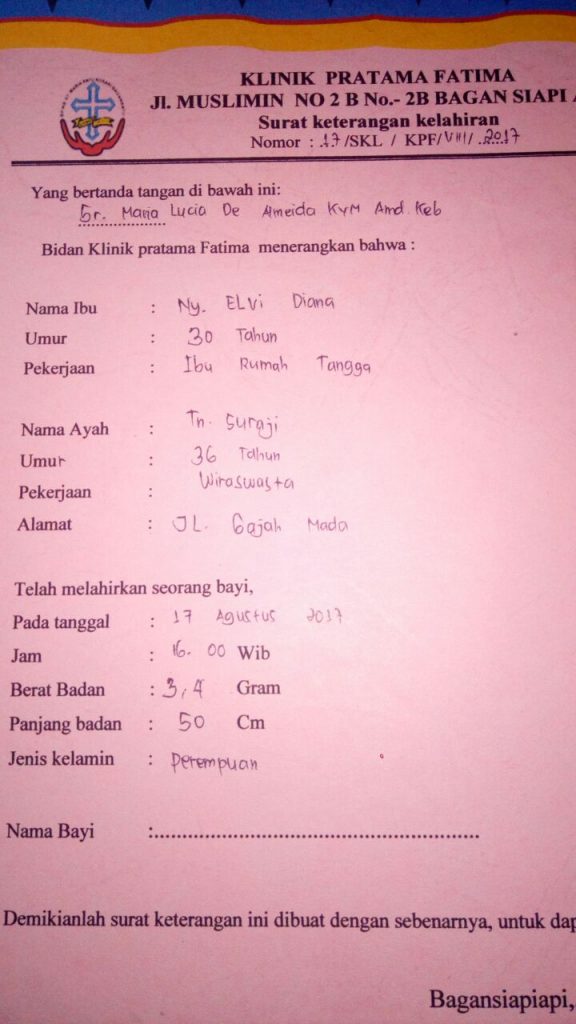 KLINIK PRATAMA FATIMA
Jl. MUSLIMIN NO 2 B No.- 2B BAGAN SIAPI A
Surat keterangan kelahiran
Nomor : 17/SKL / KPF/VIII/ 2017
Yang bertanda tangan di bawah ini:
Sr. Maria Lucia De Almeida KYM Amd. Keb
Bidan Klinik pratama Fatima menerangkan bahwa :
Nama Ibu : Ny. ELVi Diana
Umur : 30 Tahun
Pekerjaan : Ibu Rumah Tangga
Nama Ayah : Tn. Suraji
Umur : 36 Tahun
Pekerjaan : Wiraswasta
Alamat : JL. Gajah Mada
Telah melahirkan seorang bayi,
Pada tanggal : 17 Agustus 2017
Jam : 16.00 Wib
Berat Badan : 3,4 Gram
Panjang badan : 50 Cm
Jenis kelamin : Perempuan
Nama Bayi :............................................................
Demikianlah surat keterangan ini dibuat dengan sebenarnya, untuk dap
Bagansiapiapi,